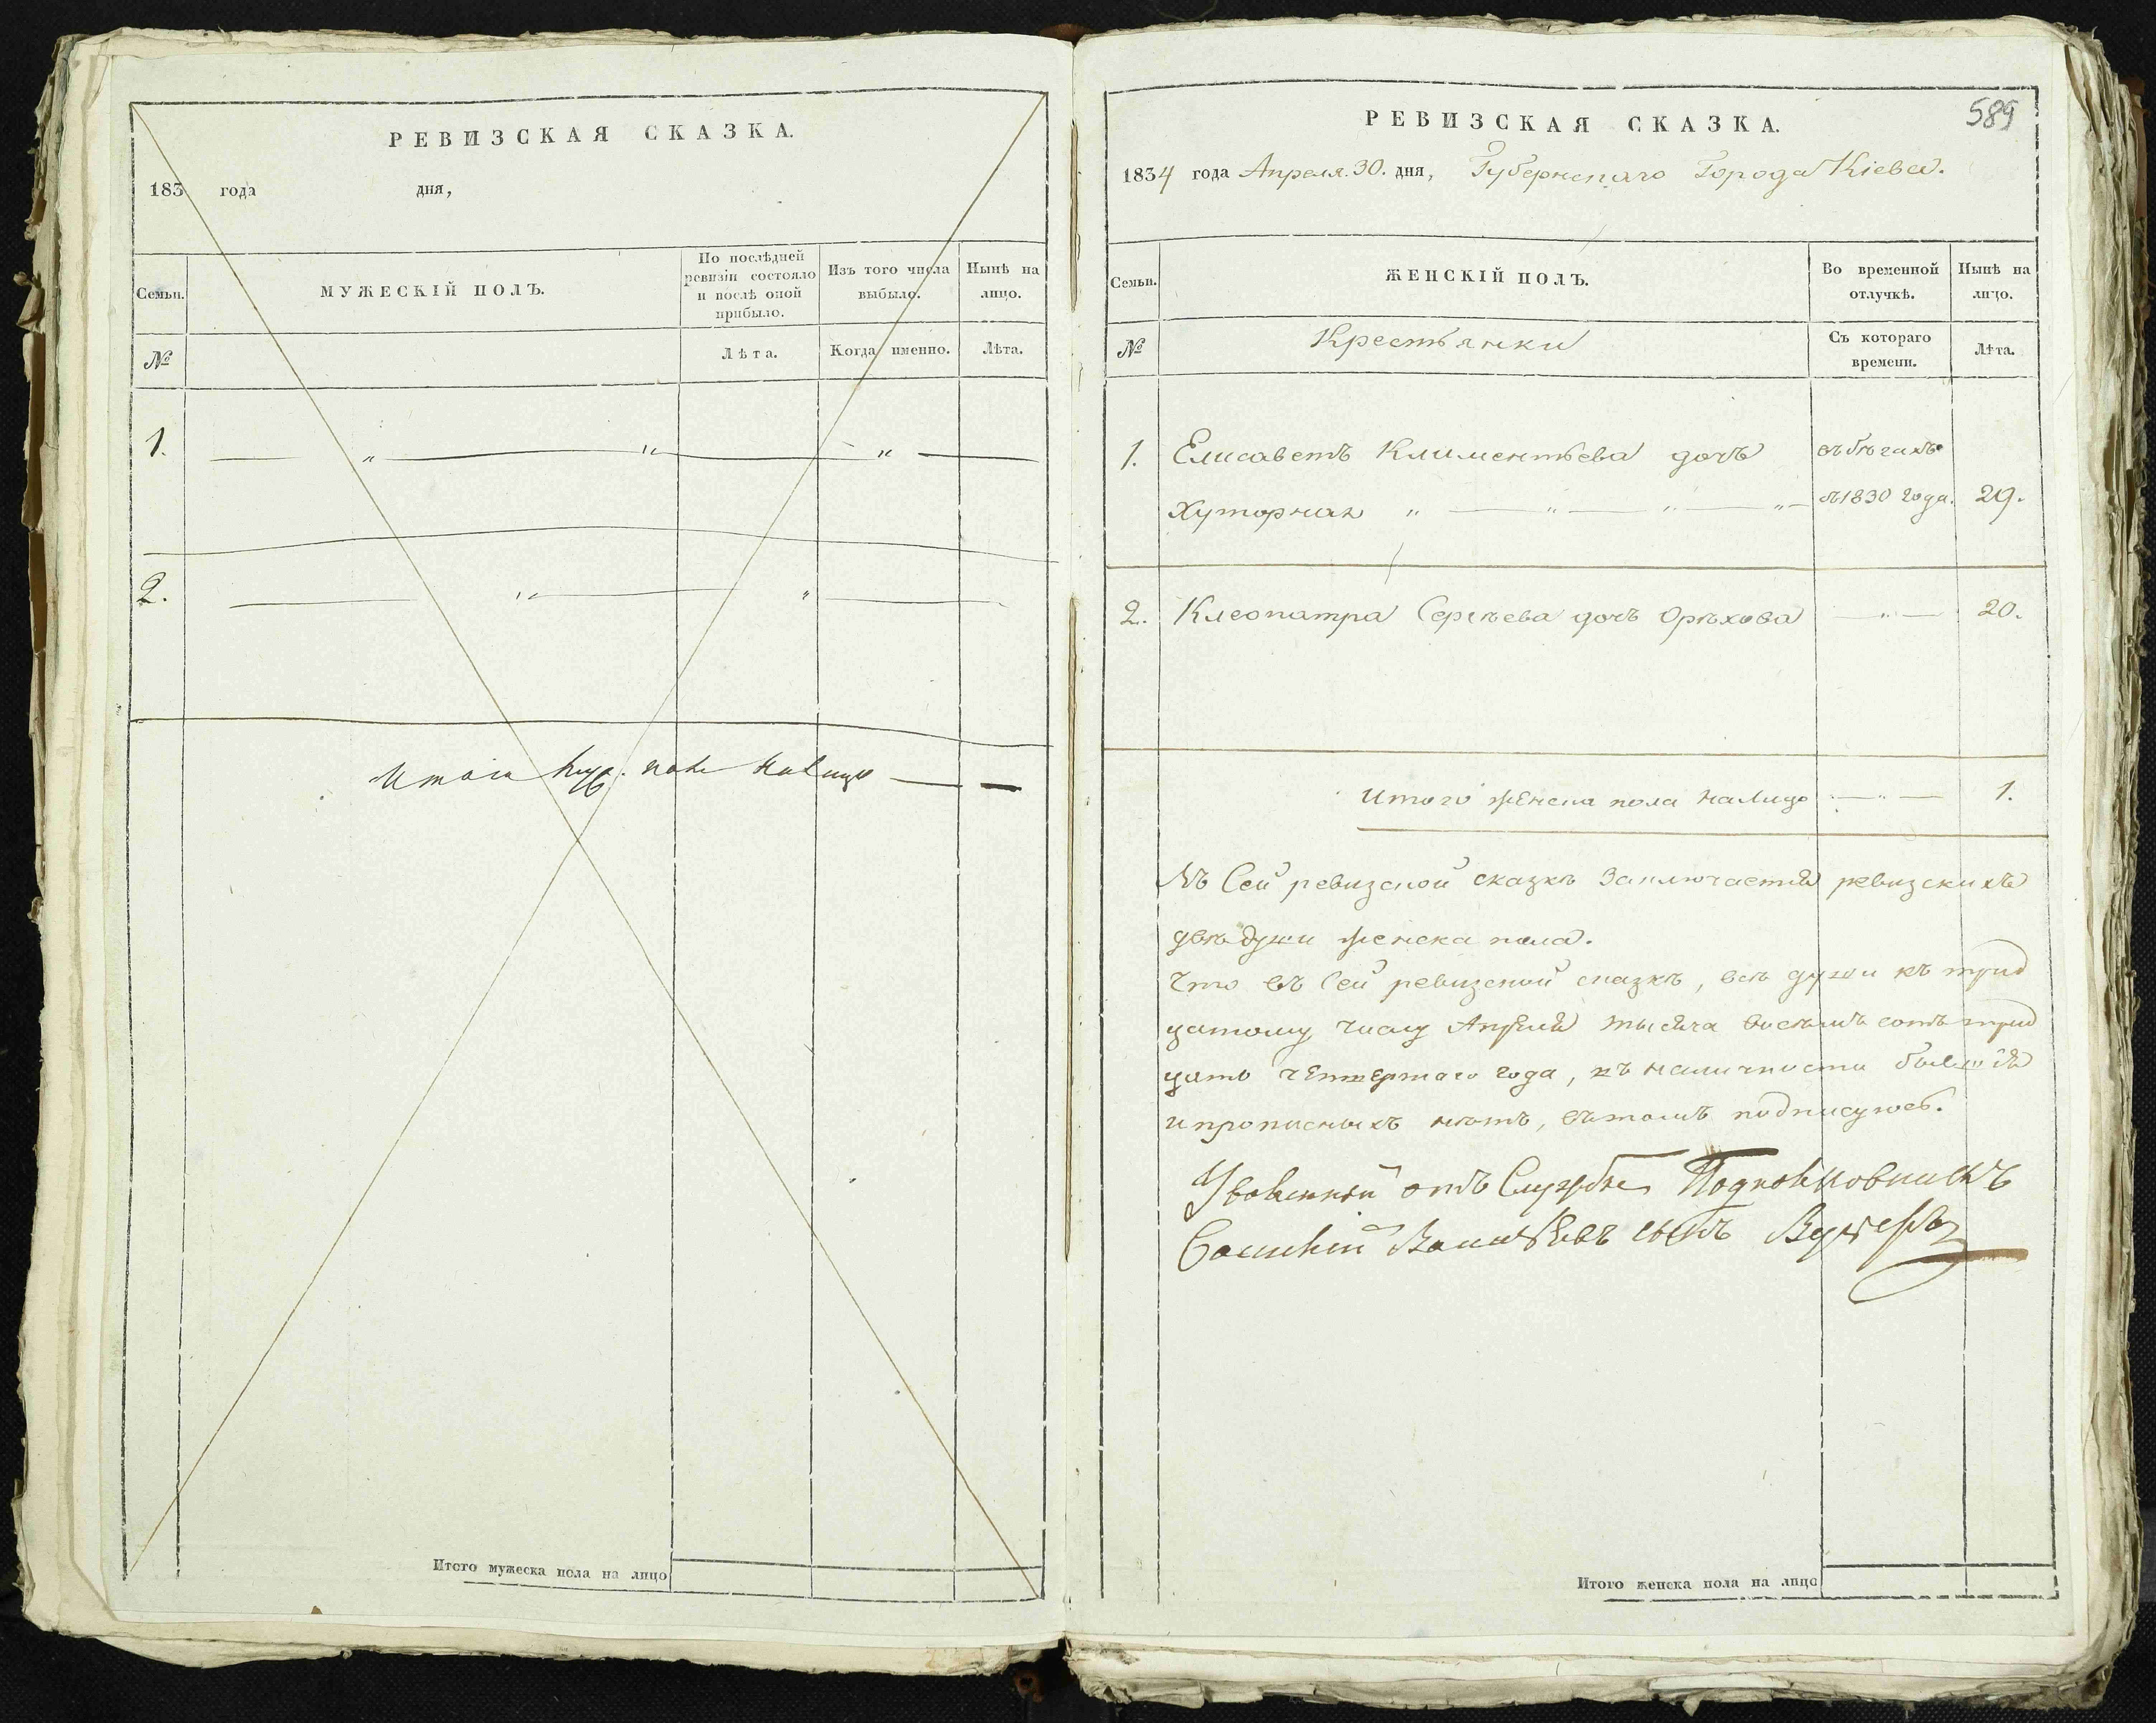 РЕВИЗСКАЯ СКАЗКА.
183 года дня,
Семьи.
МУЖЕСКІЙ ПОЛЪ.
По послѣдней
ревизіи состояло
и послѣ оной
прибыло.
Изъ того числа
выбыло.
Нынѣ на
лицо.
№
Лѣта.
Когда именно.
Лѣта.
1. — „ — „ — „ —
2. — „ — „ —
Итого муж. пола налицо — —
Итого мужеска пола на лицо
589
РЕВИЗСКАЯ СКАЗКА.
1834 года Апреля 30. дня, Губернскаго Города Кіева.
Семьи.
ЖЕНСКІЙ ПОЛЪ.
Во временной
отлучкѣ.
Нынѣ на
лицо.
№
Крестьянки
Съ котораго
времени.
Лѣта.
1. Елисаветъ Климентьева дочь въ бѣгахъ
Хуторная „ — „ — „ — „ — съ 1830 года. 29.
2. Клеопатра Сергѣева дочь Орѣхова — „ — 20.
Итого женска пола налицо — „ — 1.
Въ Сей ревизской сказкѣ Заключается ревизскихъ
двѣ души женска пола.
Что въ Сей ревизской сказкѣ, всѣ души къ трид
цатому числу Апреля тысяча восемь сотъ трид
цать четвертаго года, въ наличности бывшія
и прописныхъ нѣтъ, въ томъ подписуюсь.
Уволенный отъ Службы Подполковникъ
Василий Васильевъ сынъ
Итого женска пола на лицо